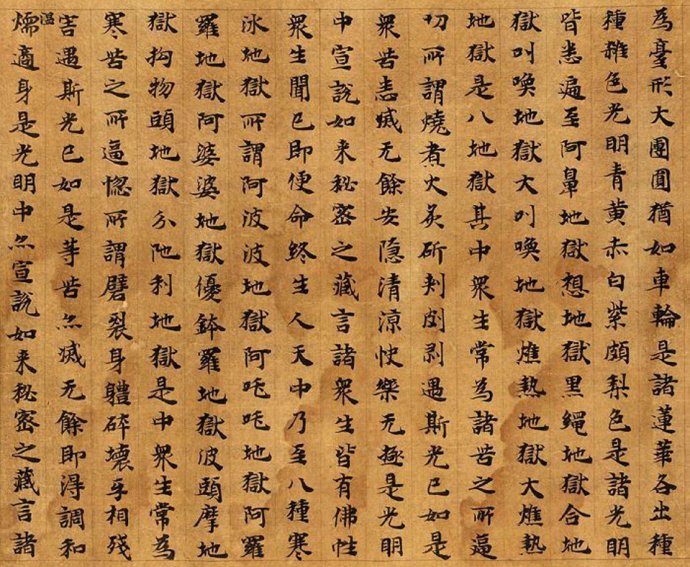 為臺形大團圓猶如車輪是諸蓮華各出種
種雜色光明青黃赤白紫頗梨色是諸光明
皆悉遍至阿鼻地獄想地獄黑繩地獄合地
獄叫喚地獄大叫喚地獄燋熱地獄大燋熱
地獄是八地獄其中眾生常為諸苦之所逼
切所謂燒煮火炙斫刾㓟剥遇斯光已如是
眾苦悉滅无餘安隱清涼快樂无極是光明
中宣說如来秘密之藏言諸眾生皆有佛性
眾生聞已即便命終生人天中乃至八種寒
氷地獄所謂阿波波地獄阿吒吒地獄阿羅
羅地獄阿婆婆地獄優鉢羅地獄波頭摩地
獄拘物頭地獄分陁利地獄是中眾生常為
寒苦之所逼惱所謂劈裂身軆碎壞互相殘
害遇斯光已如是等苦亦滅无餘即得調和
温
燸適身是光明中亦宣說如来秘密之藏言諸